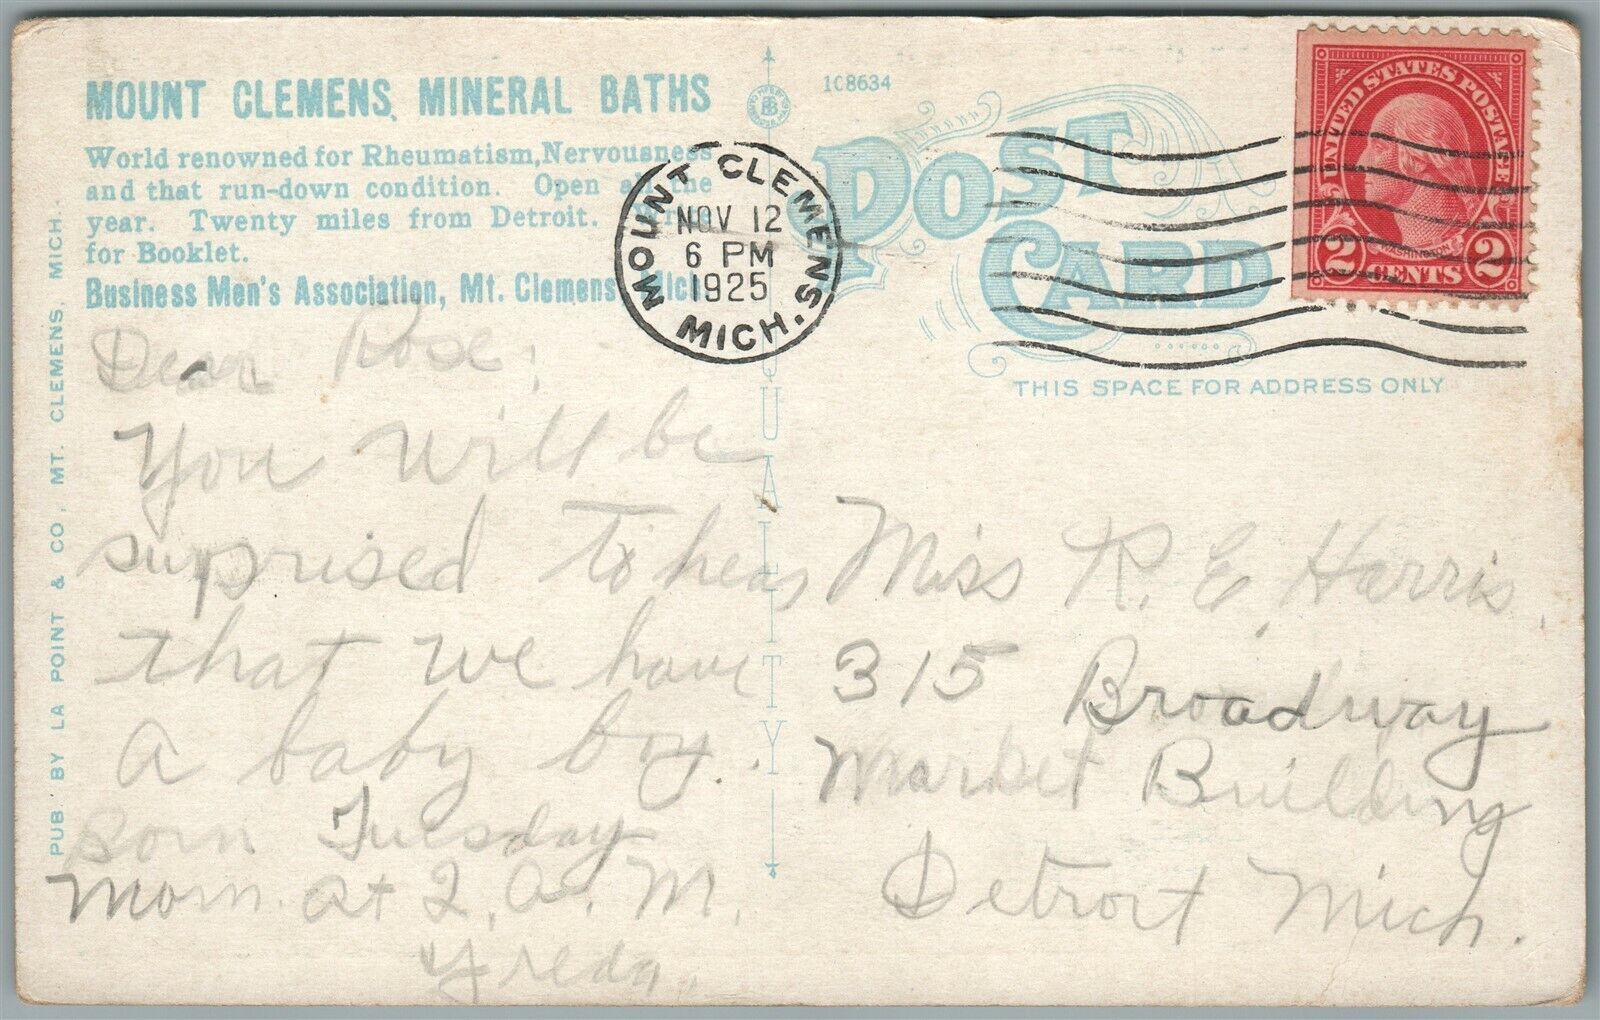 MOUNT CLEMENS, MINERAL BATHS
World renowned for Rheumatism, Nervousness
and that run-down condition. Open all the
year. Twenty miles from Detroit. Write
for Booklet.
Business Men's Association, Mt. Clemens, Mich.
PUB. BY LA POINT & CO., MT. CLEMENS, MICH.
Dear Rose,
You will be
surprised to hear
that we have
a baby boy.
Born Tuesday
Morn. at 2, A. M.
"Freda"
QUALITY
108634
POST CARD
THIS SPACE FOR ADDRESS ONLY
MOUNT CLEMENS.
NOV 12
6 PM
1925
MICH.
UNITED STATES POSTAGE
WASHINGTON
2 CENTS 2
Miss R. E. Harris,
315 Broadway
Market Building
Detroit Mich.